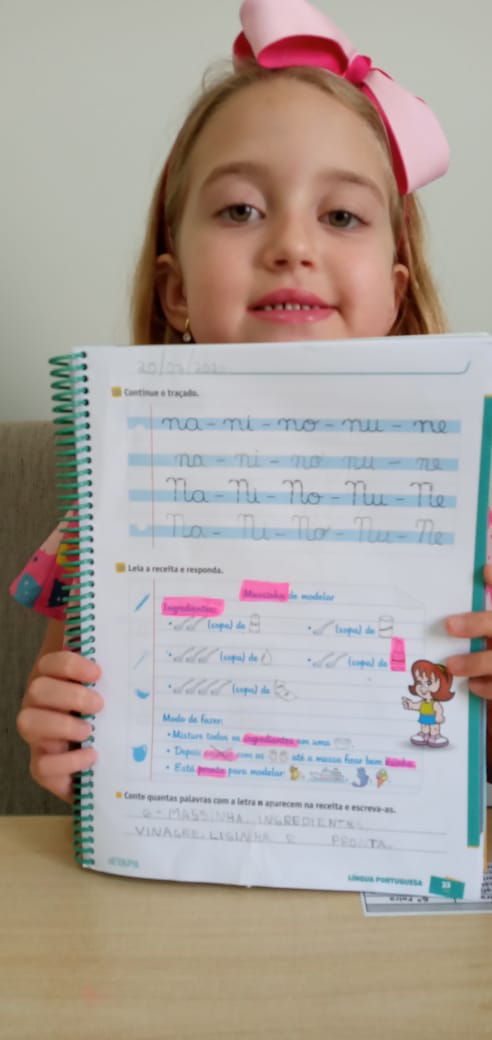 Continue o traçado.
na - ni - no - nu - ne
na - ni - no nu - ne
Na - Ni - No - Nu - Ne
Na - Ni - No - Nu - Ne
Leia a receita e responda.
Massinha de modelar
Ingredientes
• (sopa) de • (sopa) de
• (sopa) de • (sopa) de
• (sopa) de
Modo de fazer:
• Misture todos os ingredientes em uma
• Depois com as até a massa ficar bem lisinha.
• Está pronta para modelar:
Conte quantas palavras com a letra n aparecem na receita e escreva-as.
6 - MASSINHA, INGREDIENTES
VINAGRE, LISINHA E PRONTA.
LÍNGUA PORTUGUESA 33